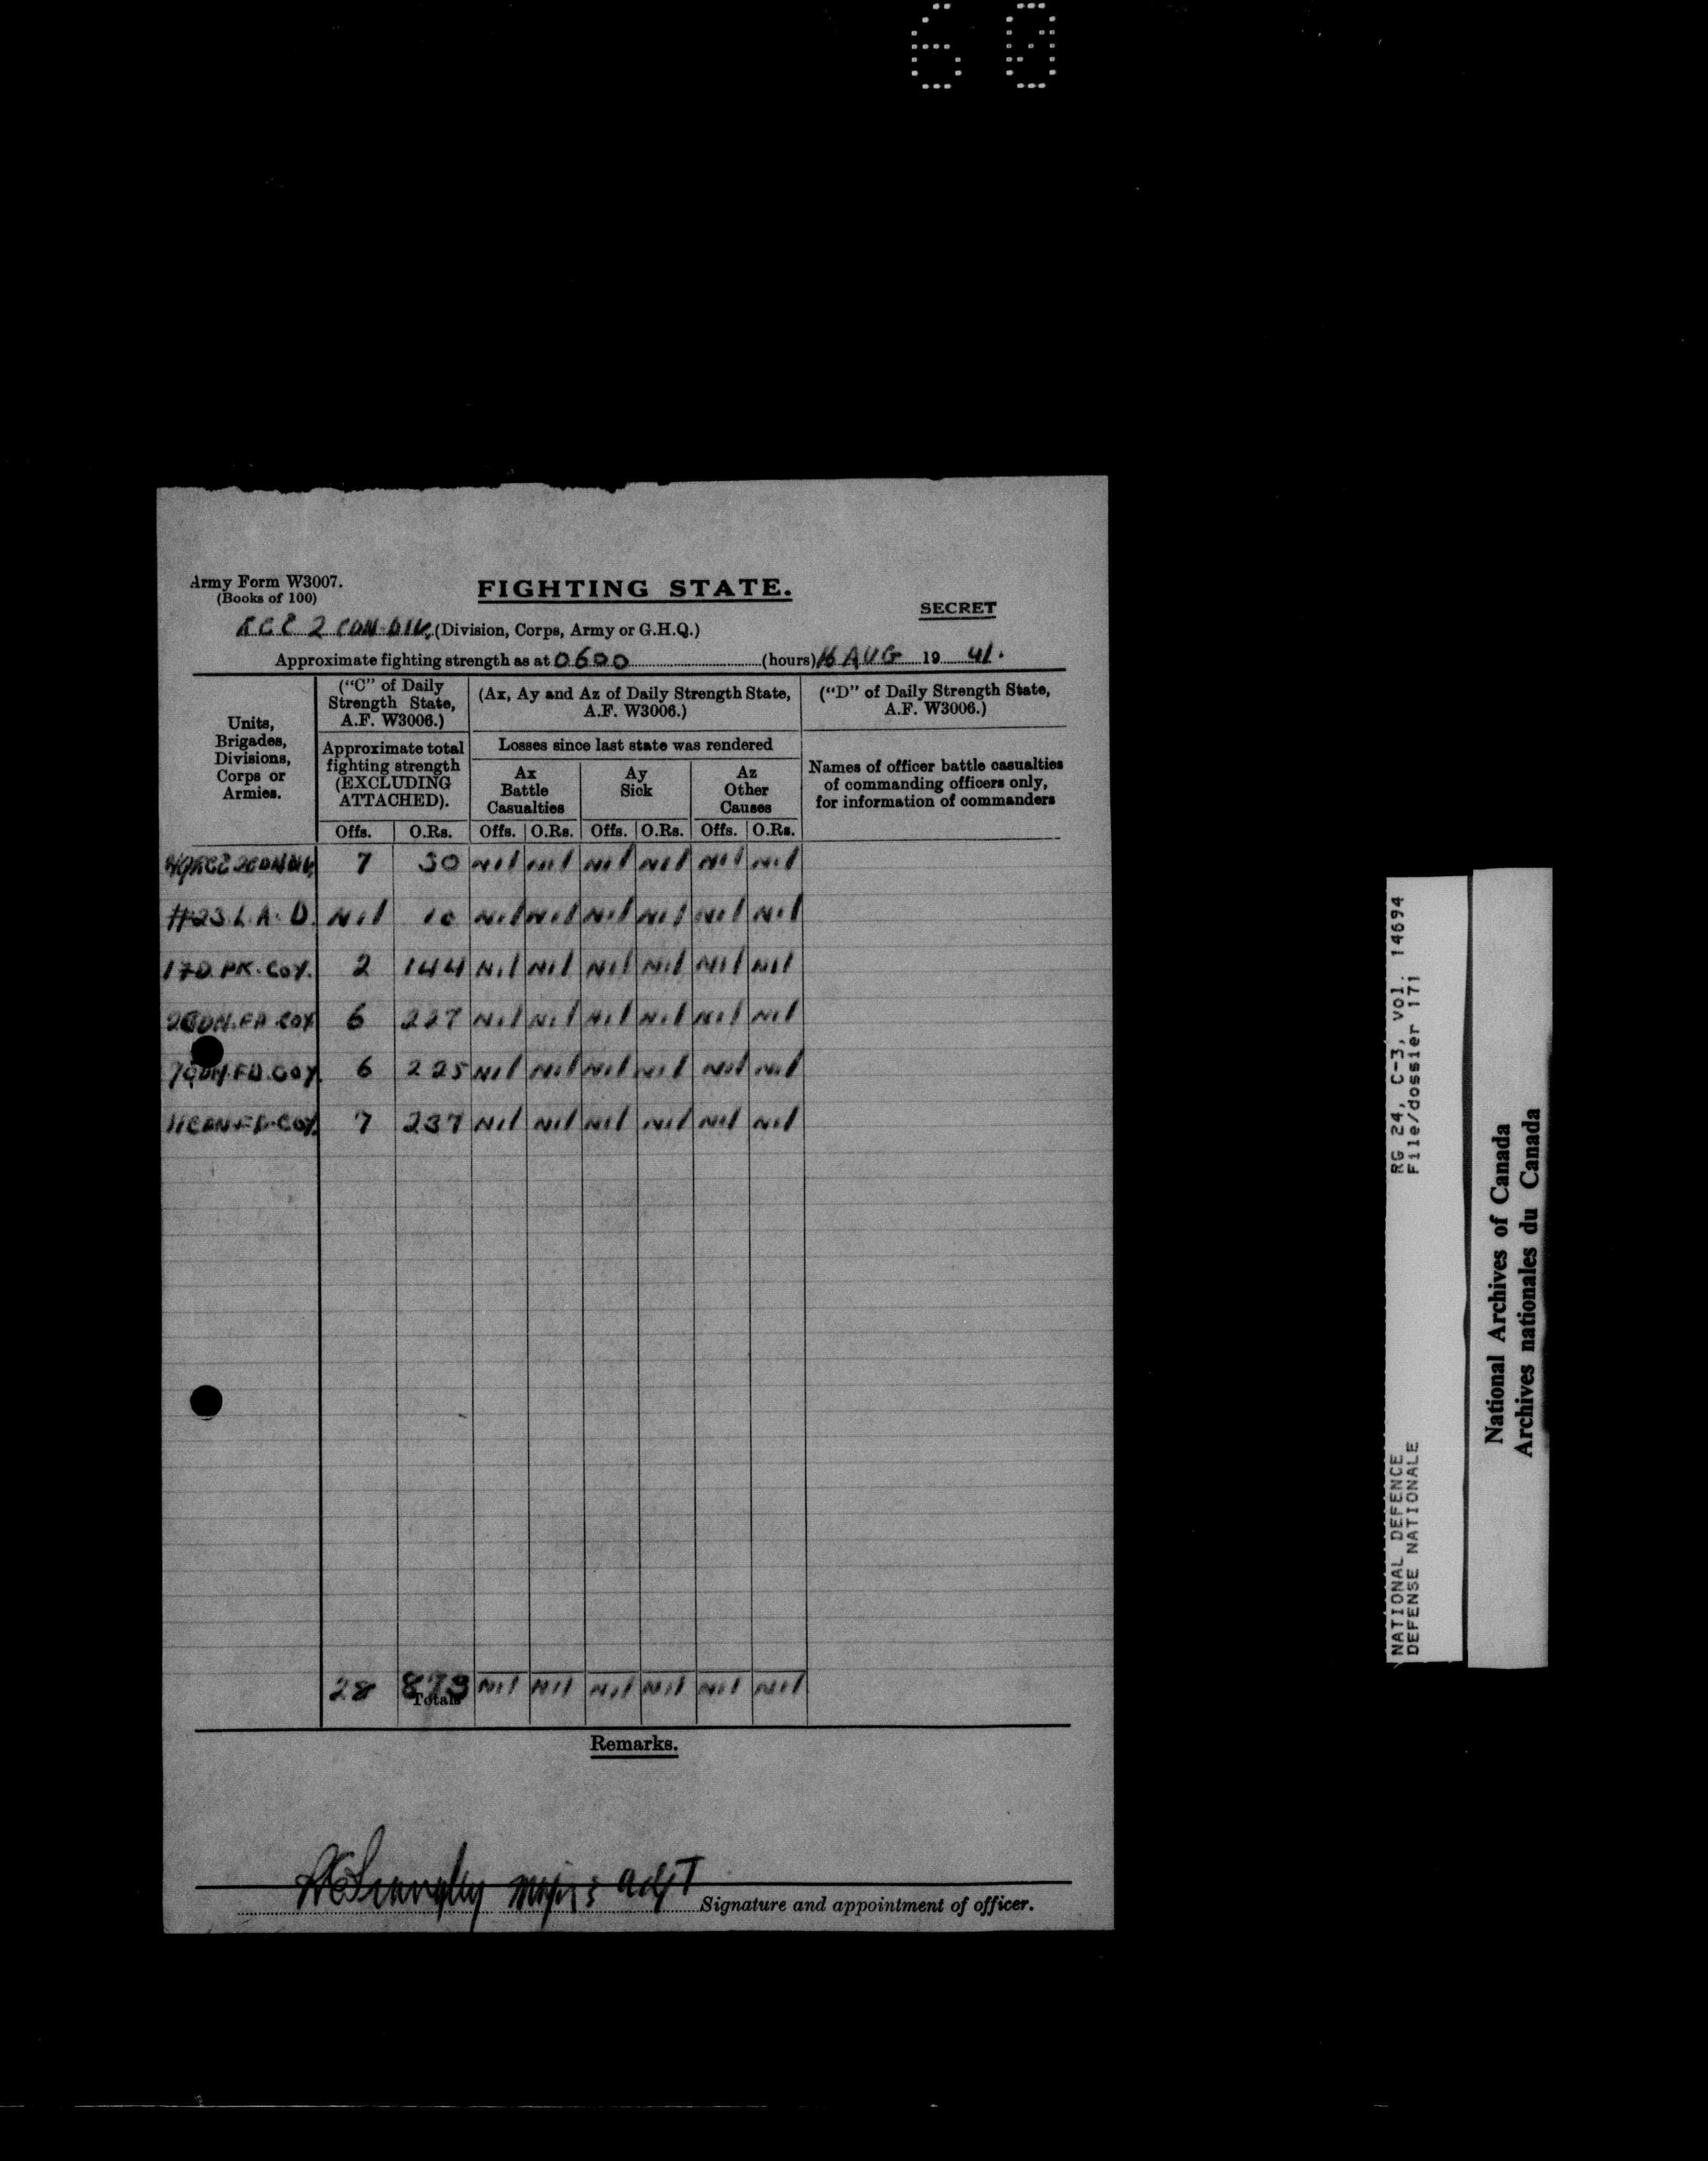 60
Army Form W3007.
(Books of 100)
FIGHTING STATE.
SECRET
RCE 2 CDN DIV. (Division, Corps, Army or G.H.Q.)
Approximate fighting strength as at 0600 (hours) 16 AUG 19 41.
Units, Brigades, Divisions, Corps or Armies.
("C" of Daily Strength State, A.F. W3006.)
(Ax, Ay and Az of Daily Strength State, A.F. W3006.)
("D" of Daily Strength State, A.F. W3006.)
Approximate total fighting strength (EXCLUDING ATTACHED).
Losses since last state was rendered
Names of officer battle casualties of commanding officers only, for information of commanders
Ax Battle Casualties
Ay Sick
Az Other Causes
Offs. O.Rs. Offs. O.Rs. Offs. O.Rs. Offs. O.Rs.
HQ RCE 2 CDN DIV. 7 30 Nil Nil Nil Nil Nil Nil
#23 L.A.D. Nil 10 Nil Nil Nil Nil Nil Nil
1 FD. PK. COY. 2 144 Nil Nil Nil Nil Nil Nil
2 CDN. FD. COY 6 227 Nil Nil Nil Nil Nil Nil
7 CDN. FD. COY. 6 225 Nil Nil Nil Nil Nil Nil
11 CDN FD. COY. 7 237 Nil Nil Nil Nil Nil Nil
28 873 Nil Nil Nil Nil Nil Nil
Totals
Remarks.
Major & Adjt
Signature and appointment of officer.
RG 24, C-3, vol. 14694
File/dossier 171
NATIONAL DEFENCE
DEFENSE NATIONALE
National Archives of Canada
Archives nationales du Canada